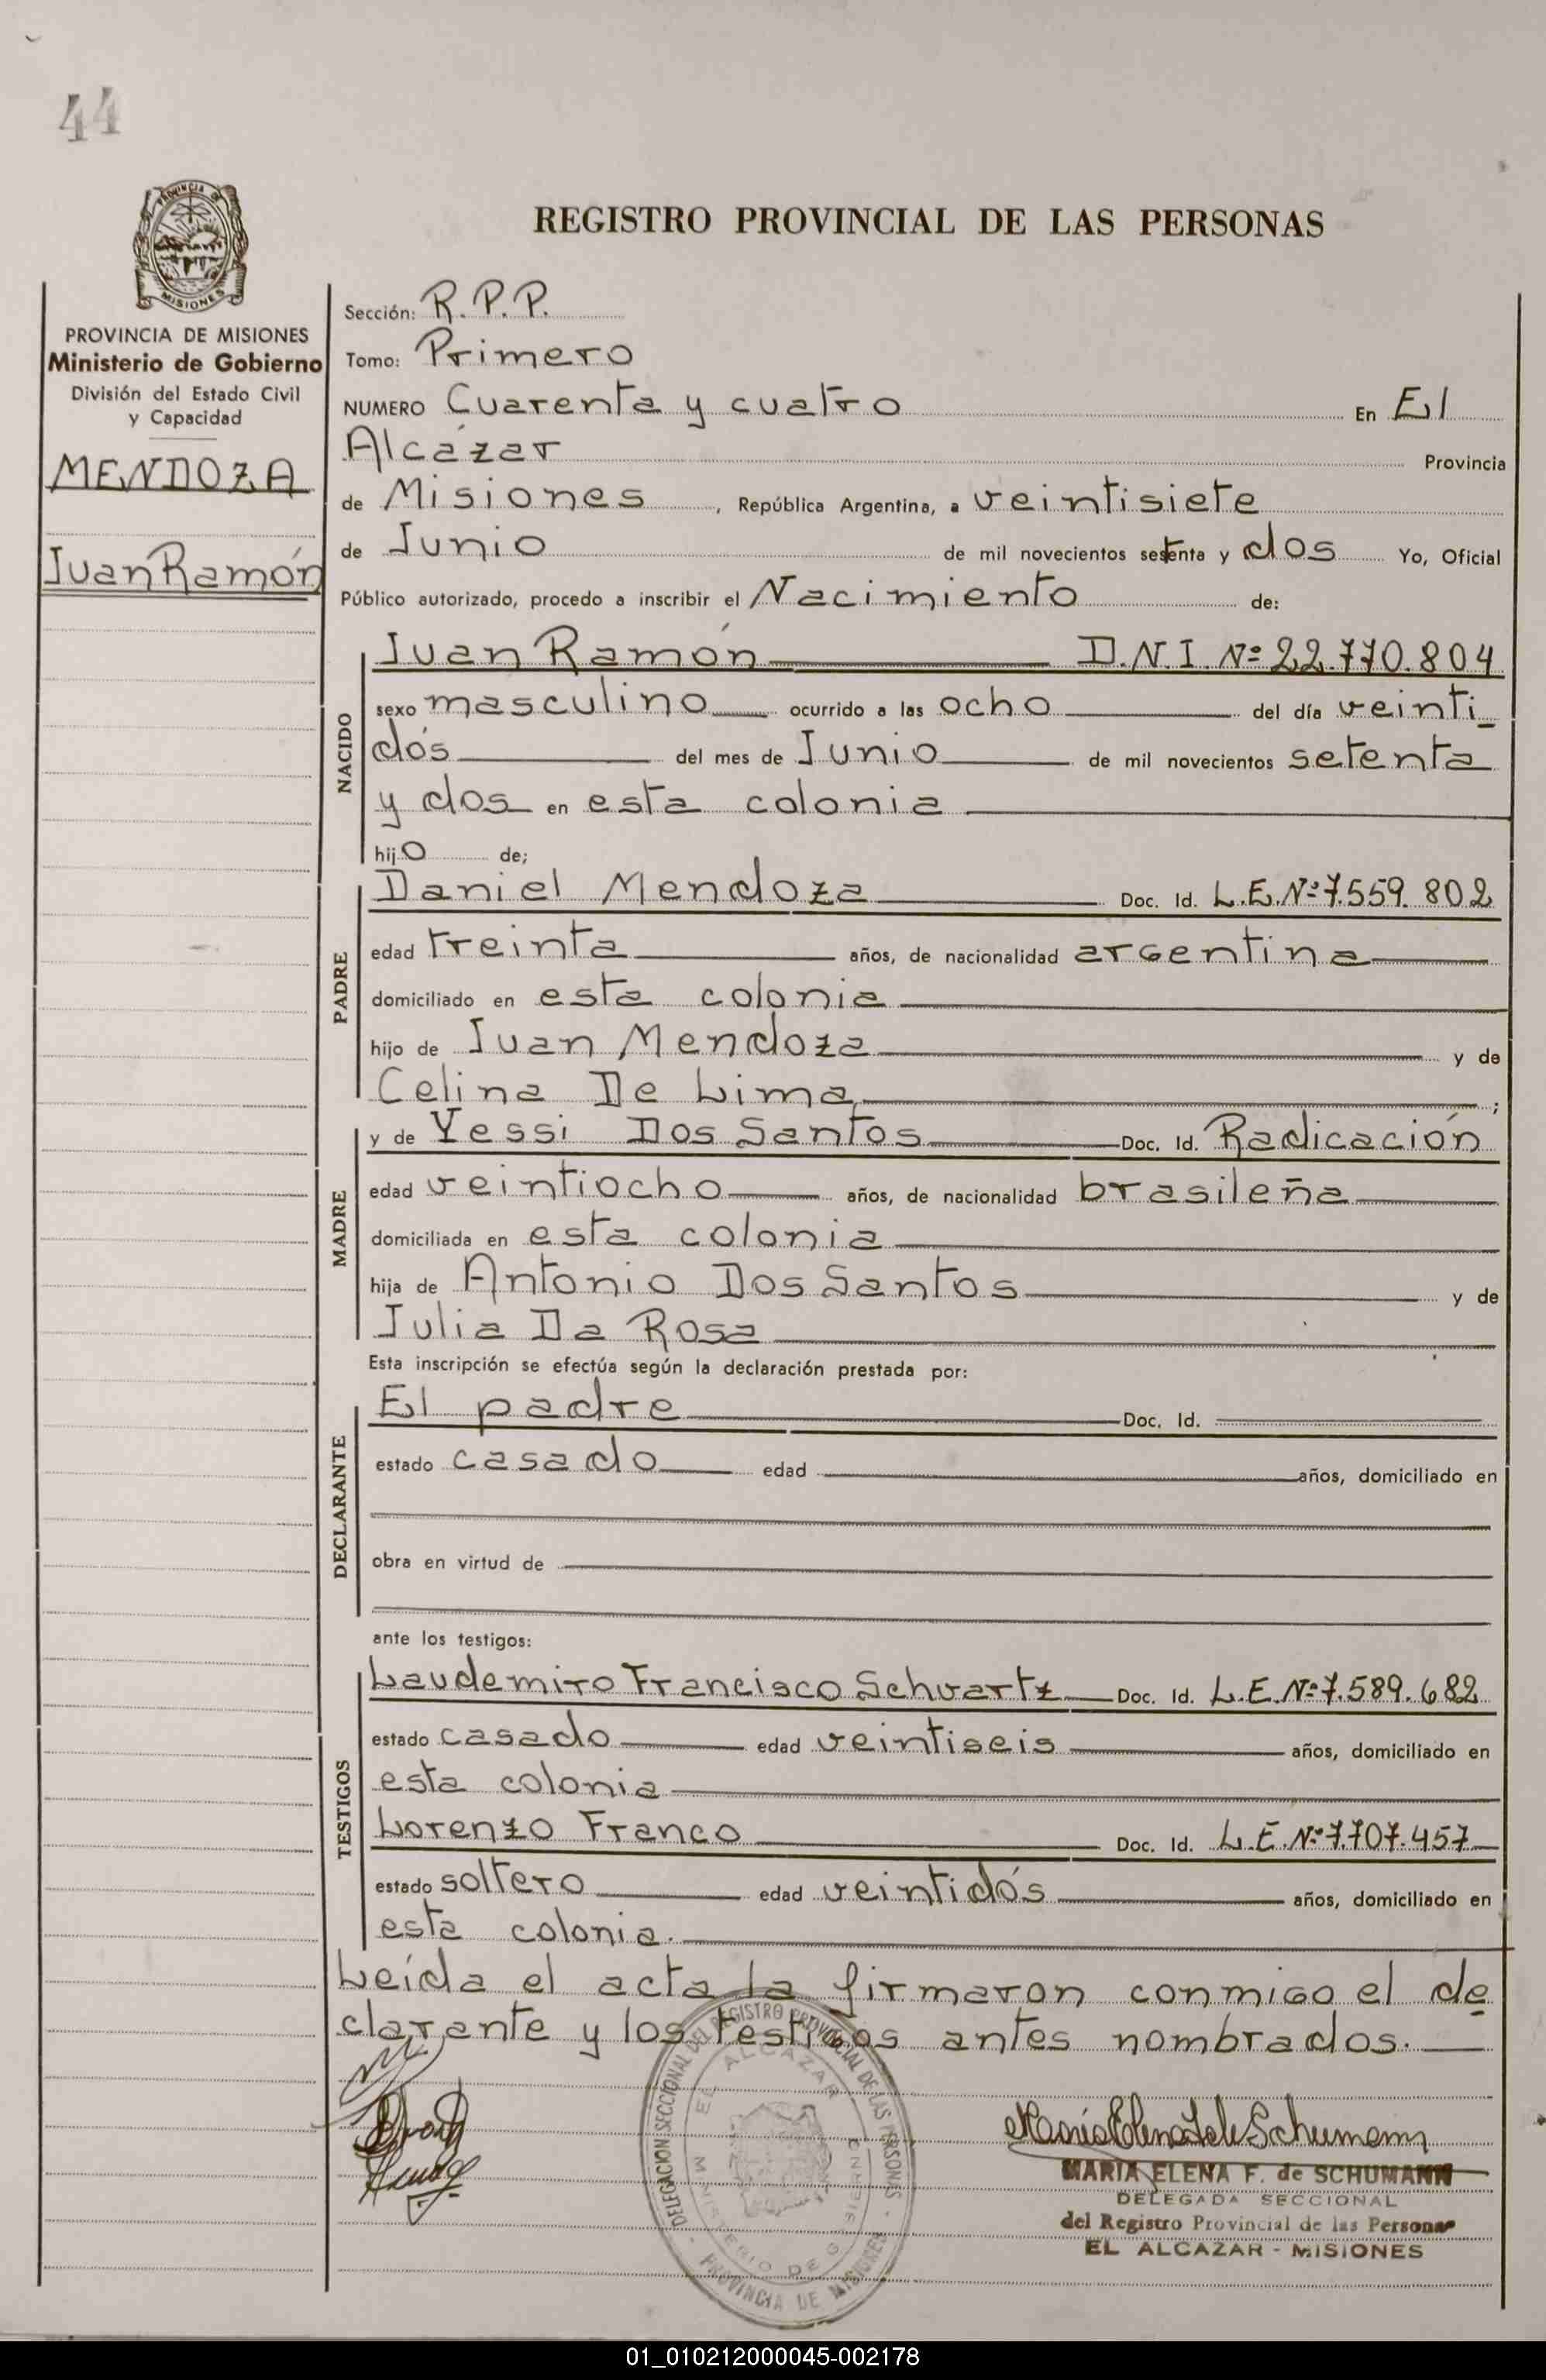 44
PROVINCIA DE MISIONES
REGISTRO PROVINCIAL DE LAS PERSONAS
PROVINCIA DE MISIONES
Ministerio de Gobierno
División del Estado Civil
y Capacidad
MENDOZA
Juan Ramón
Sección: R.P.P.
Tomo: Primero
NUMERO Cuarenta y cuatro En El
Alcázar Provincia
de Misiones, República Argentina, a veintisiete
de Junio de mil novecientos setenta y dos Yo, Oficial
Público autorizado, procedo a inscribir el Nacimiento de:
NACIDO
Juan Ramón D.N.I. Nº 22.770.804
sexo masculino ocurrido a las ocho del día veinti_
dós del mes de Junio de mil novecientos setenta
y dos en esta colonia
hijo de;
PADRE
Daniel Mendoza Doc. Id. L.E.Nº 7.559.802
edad treinta años, de nacionalidad argentina
domiciliado en esta colonia
hijo de Juan Mendoza y de
Celina De Lima;
MADRE
y de Yessi Dos Santos Doc. Id. Radicación
edad veintiocho años, de nacionalidad brasileña
domiciliada en esta colonia
hija de Antonio Dos Santos y de
Julia Da Rosa
Esta inscripción se efectúa según la declaración prestada por:
DECLARANTE
El padre Doc. Id.
estado casado edad años, domiciliado en
obra en virtud de
ante los testigos:
TESTIGOS
Laudemiro Francisco Schvartz Doc. Id. L.E.Nº 7.589.682
estado casado edad veintiseis años, domiciliado en
esta colonia
Lorenzo Franco Doc. Id. L.E.Nº 7.707.457
estado soltero edad veintidós años, domiciliado en
esta colonia.
Leída el acta la firmaron conmigo el de
clarante y los testigos antes nombrados.
DELEGACION SECCIONAL DEL REGISTRO PROVINCIAL DE LAS PERSONAS
EL ALCAZAR
MINISTERIO DE GOBIERNO
PROVINCIA DE MISIONES
María Elena F. de Schumann
MARIA ELENA F. de SCHUMANN
DELEGADA SECCIONAL
del Registro Provincial de las Personas
EL ALCAZAR - MISIONES
01_010212000045-002178